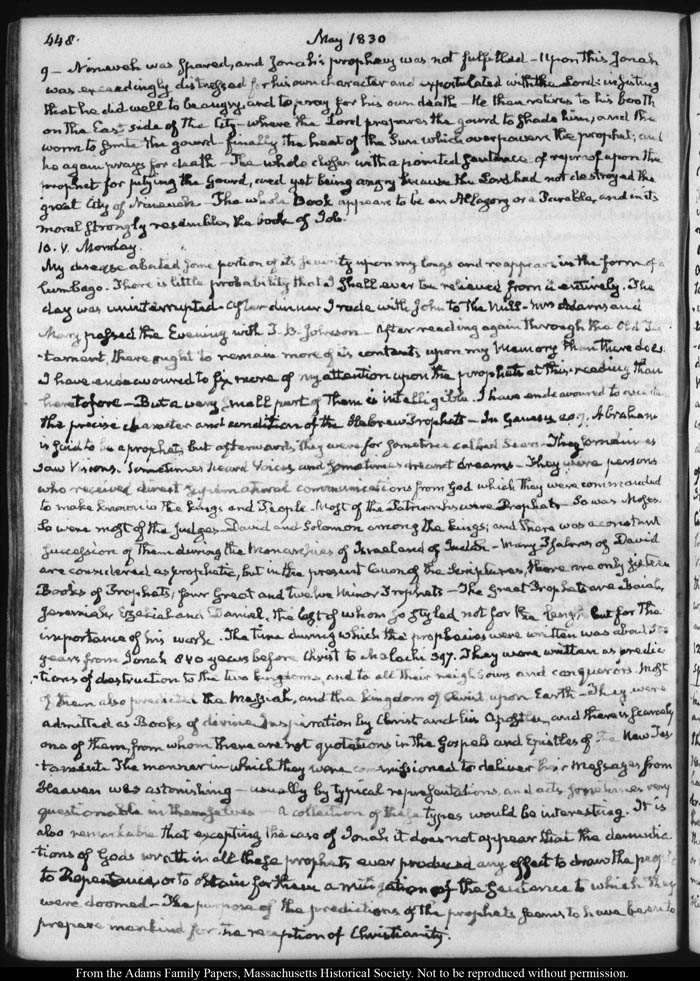 448.
May 1830
9 — Nineveh was spared, and Jonah's prophecy was not fulfilled — Upon this Jonah
was exceedingly distressed for his own character and expostulated with the Lord: insisting
that he did well to be angry, and to pray for his own death — He then retires to his booth
on the East side of the City — where the Lord prepares the gourd to shade him, and the
worm to smite the gourd — finally the heat of the Sun which overpowers the prophet; and
he again prays for death — The whole closes with a pointed sentence of reproof upon the
prophet for pitying the Gourd, and yet being angry because the Lord had not destroyed the
great City of Nineveh — The whole Book appears to be an Allegory or a Parable, and in its
moral strongly resembles the book of Job.
10. V. Monday.
My disease abated some portion of its severity upon my lungs and reappears in the form of a
lumbago. There is little probability that I shall ever be relieved from it entirely. The
day was uninterrupted — After dinner I rode with John to the Mill — Mrs Adams and
Mary passed the Evening with T. B. Johnson — After reading again through the Old Tes-
tament, there ought to remain more of its contents upon my Memory than there does.
I have endeavoured to fix more of my attention upon the prophets at this reading than
heretofore — But a very small part of them is intelligible. I have endeavoured to
the precise character and condition of the Hebrew Prophets — In Genesis 20.7. Abraham
is said to be a prophet, but afterwards they were for sometime called Seers — They sometimes
saw Visions. Sometimes heard Voices and sometimes dreamt dreams — They were persons
who received direct supernatural communications from God which they were commanded
to make known to the Kings and People. Most of the Patriarchs were Prophets — So was Moses.
So were most of the Judges — David and Solomon among the Kings; and there was a constant
succession of them during the Monarchies of Israel and of Judah — Many Psalms of David
are considered as prophetic, but in the present Canon of the Scriptures, there are only sixteen
Books of Prophets; four Great and twelve Minor Prophets — The Great Prophets are Isaiah,
Jeremiah, Ezekiel and Daniel, the last of whom so styled not for the length but for the
importance of his work. The time during which the prophecies were written was about
years from Jonah 840 years before Christ to Malachi 397. They were written as predic-
tions of destruction to the two kingdoms, and to all their neighbours and conquerors. Most
of them also predicted the Messiah, and the kingdom of Christ upon Earth — They were
admitted as Books of divine Inspiration by Christ and his Apostles, and there is scarcely
one of them, from whom there are not quotations in the Gospels and Epistles of the New Tes-
tament. The manner in which they were commissioned to deliver their Messages from
Heaven was astonishing — usually by typical representations, and acts sometimes very
questionable in themselves — A collection of these types would be interesting. It is
also remarkable that excepting the case of Jonah it does not appear that the denuncia-
tions of Gods wrath in all these prophets ever produced any effect to draw the people
to Repentance, or to obtain for them a mitigation of the sentence to which they
were doomed — The purpose of the predictions of the prophets seems to have been to
prepare mankind for the reception of Christianity.
From the Adams Family Papers, Massachusetts Historical Society. Not to be reproduced without permission.